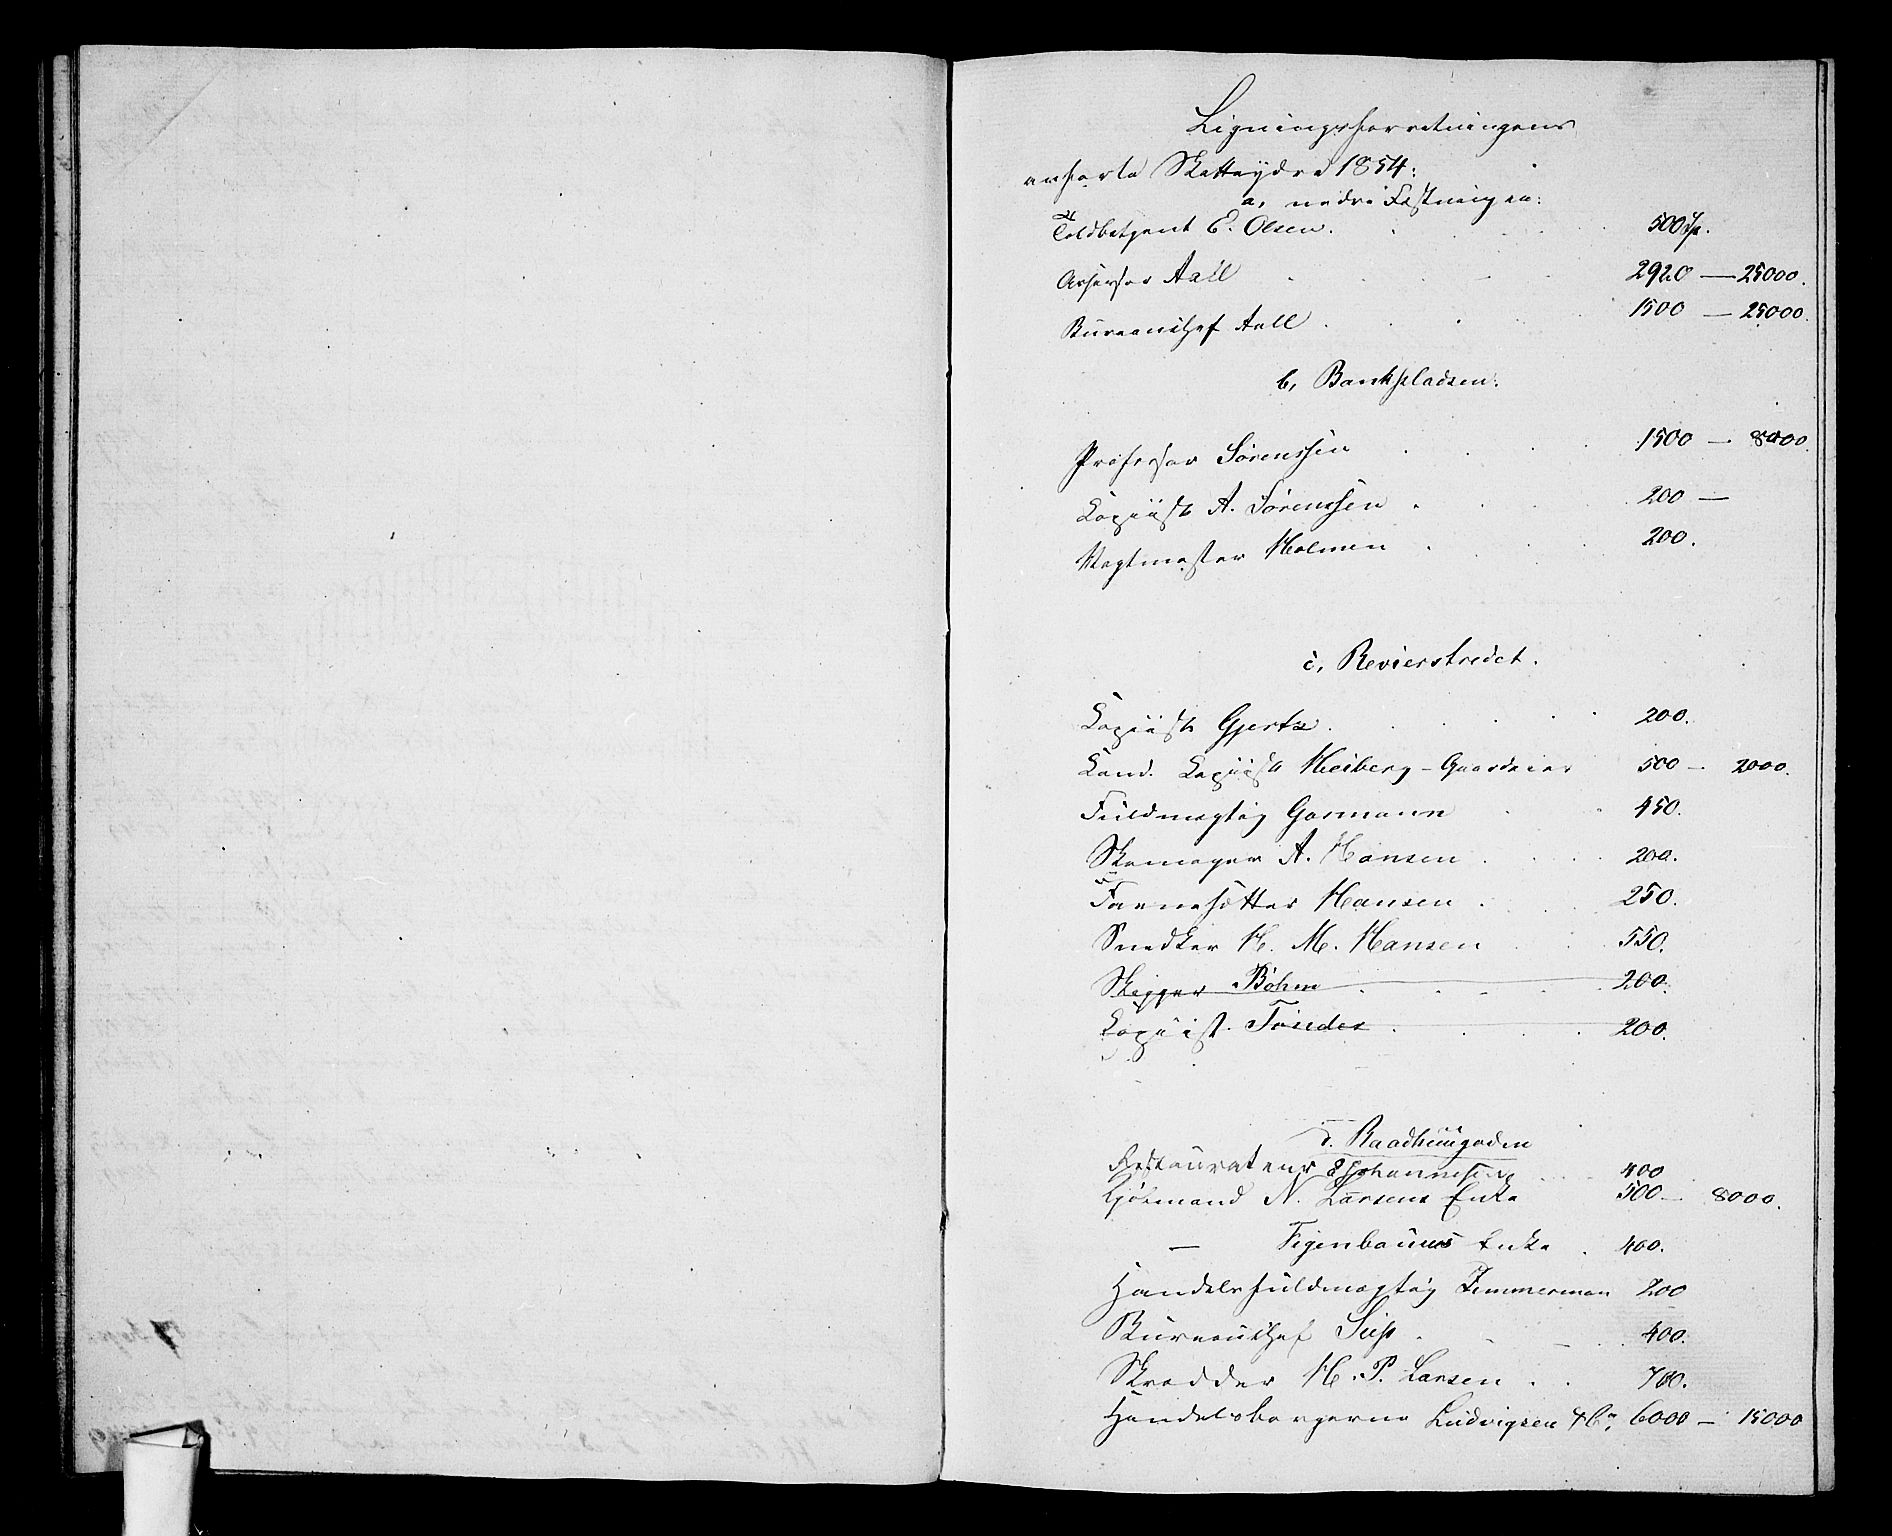 Ligningsforretningens
anførte Skatteydre 1854:
a, nedre Fæstningen:
Toldbetjent E. Olsen. 500 Sp.
Assessor Aall 2920 — 25000.
Bureauchef Aall 1500 — 25000.
b, Bankpladsen:
Professor Sørenssen 1500 — 8000.
Copiist A. Sørenssen 200 —
Vagtmester Holmen 200.
c, Revierstredet.
Copiist Gjertz 200.
Cand. Copiist Heiberg - Gaardeier 500 — 2000.
Fuldmægtig Garmann 450.
Skomager A. Hansen 200.
Farvesætter Hansen 250.
Snedker H. M. Hansen 550.
Skipper Bøhm 200.
Copiist Tønder 200.
d. Raadhuusgaden
Restaurateur E Johannesen 400
Kjøbmand N. Larsens Enke 500 — 8000.
— Figenbaums Enke 400.
Handelsfuldmægtig Zimmerman 200
Bureauchef Susp 400.
Skrædder H. P. Larsen 700.
Handelsborgerne Ludvigsen & Co, 6000 — 15000